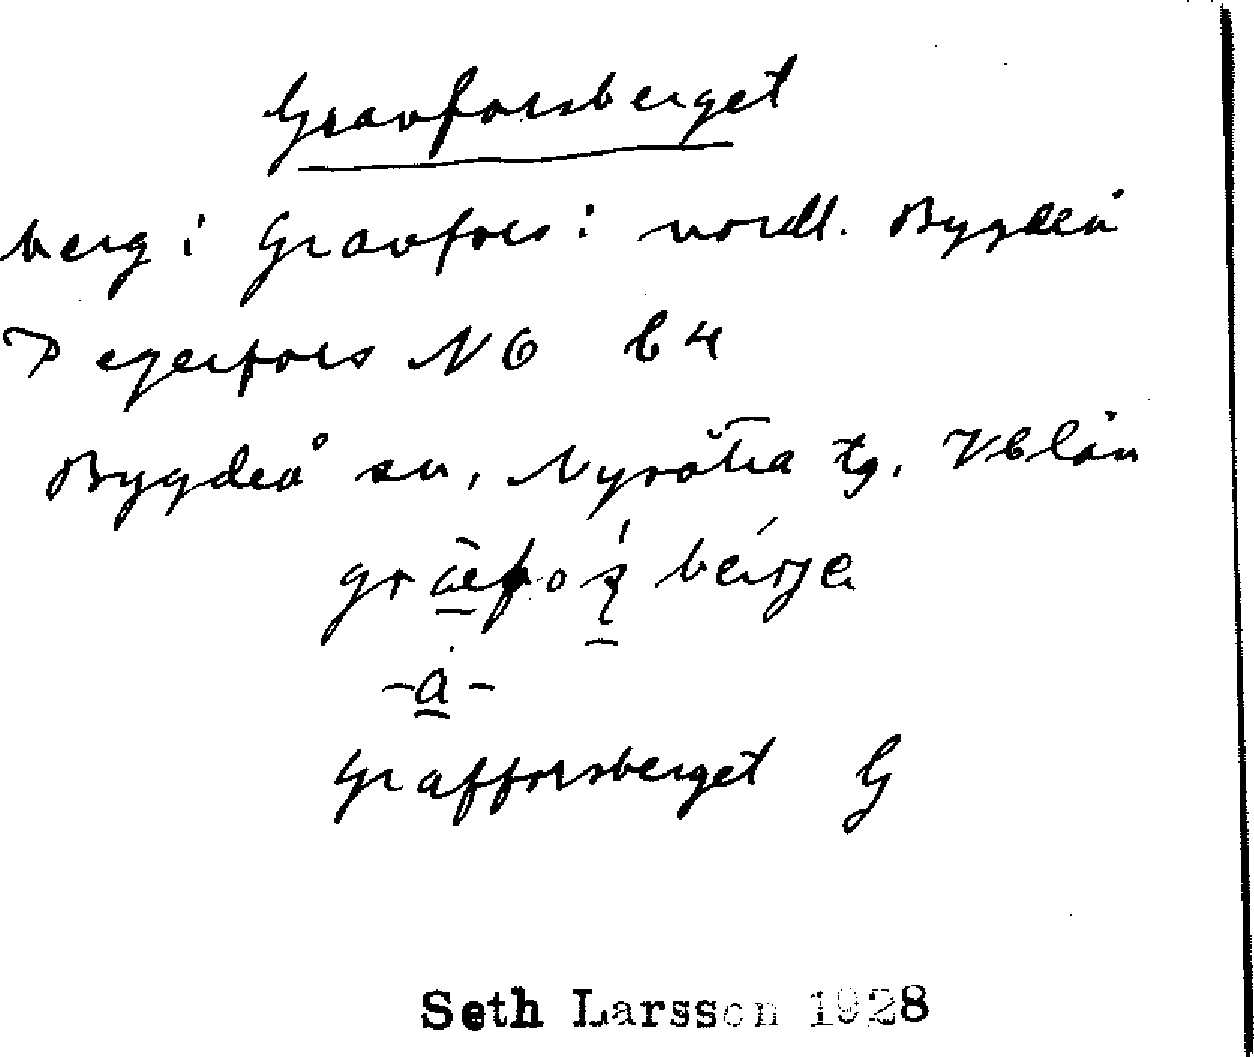 Gravforsberget
berg i Gravfors i nordl. Bygdeå
Degerfors NO b4
Bygdeå sn, Nysätra tg. Vblän
bérje
-a-
Grafforsberget G
Seth Larsson 1928